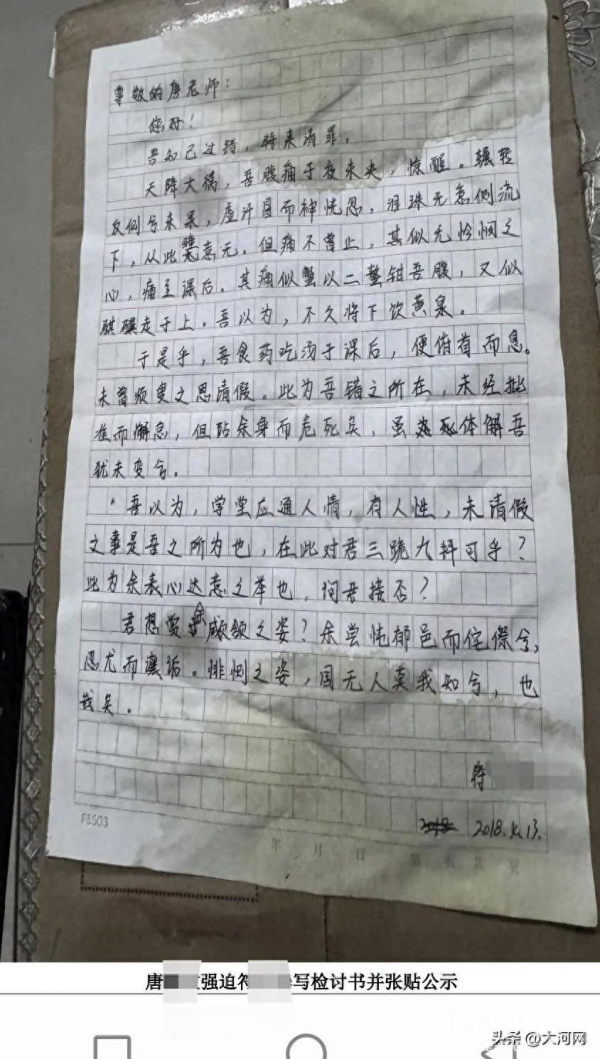 尊敬的唐老师：
您好！
吾知己过错，特来请罪。
天降大祸，吾腹痛于夜未央，惊醒。辗转
反侧兮未果，虚汗冒而神恍忽，泪珠无意侧流
下，从此寒意无。但痛不曾止，其似无怜悯之
心，痛至课后。其痛似蟹以二螯钳吾腹，又似
骐骥走于上。吾以为，不久将下饮黄泉。
于是乎，吾食药吃汤于课后，便俯首而息。
未曾须臾之思请假。此为吾错之所在，未经批
准而懈怠，但阽余身而危死矣，虽体解吾
犹未变兮。
吾以为，学堂应通人情，有人性，未请假
之事是吾之所为也，在此对君三跪九拜可乎？
此为余表心达意之举也，问君接否？
君想爱余顑颔之姿？余尝忳郁邑而侘傺兮，
忍尤而攘诟。悱恻之姿，国无人莫我知兮，也
哉矣。
符
2018.12.13.
FB503
年 月 日 第 页 共 页
唐 强迫符 写检讨书并张贴公示
头条 @大河网